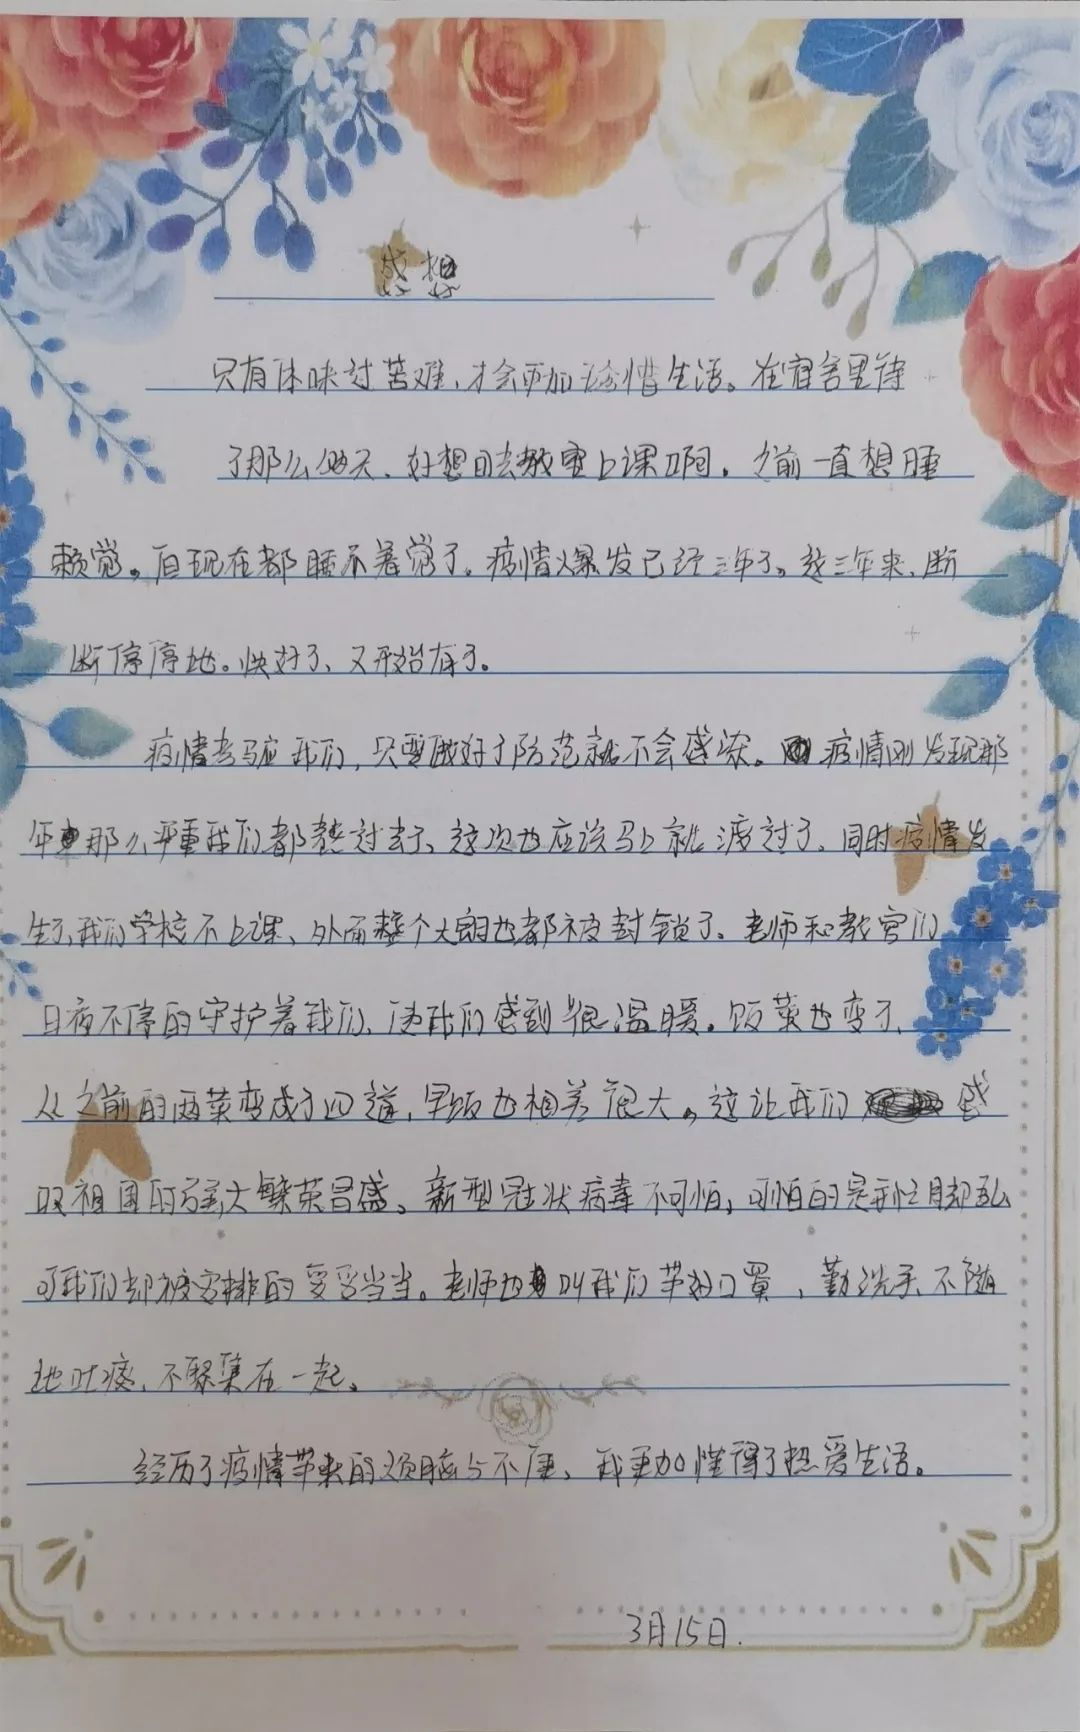 感想
只有体味过苦难，才会更加珍惜生活。在宿舍里待
了那么多天，好想回去教室上课啊。之前一直想睡
懒觉。但现在都睡不着觉了。疫情爆发已经三年了。这三年来，断
断停停地。快好了、又开始有了。
疫情考验我们，只要做好了防范就不会感染。疫情刚发现那
年那么严重我们都熬过去了、这次也应该马上就渡过了、同时疫情发
生了，我们学校不上课、外面整个大朗也都被封锁了、老师和教官们
日夜不停的守护着我们，使我们感到很温暖。饭菜也变了、
从之前的两菜变成了四道，早饭也相差很大。这让我们感
叹祖国的强大繁荣昌盛。新型冠状病毒不可怕，可怕的是手忙脚乱
可我们却被安排的妥妥当当。老师也叫我们带好口罩，勤洗手、不随
地吐痰、不聚集在一起。
经历了疫情带来的烦脑与不便、我更加懂得了热爱生活。
3月15日.